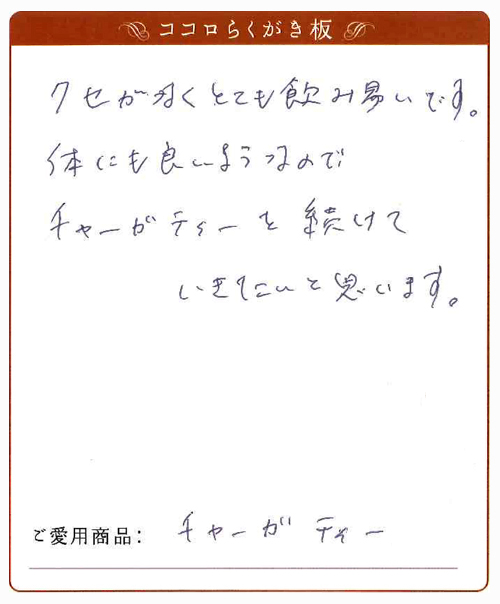 ココロらくがき板
クセがなくとても飲み易いです。
体にも良いようなので
チャーガティーを続けて
いきたいと思います。
ご愛用商品:チャーガティー